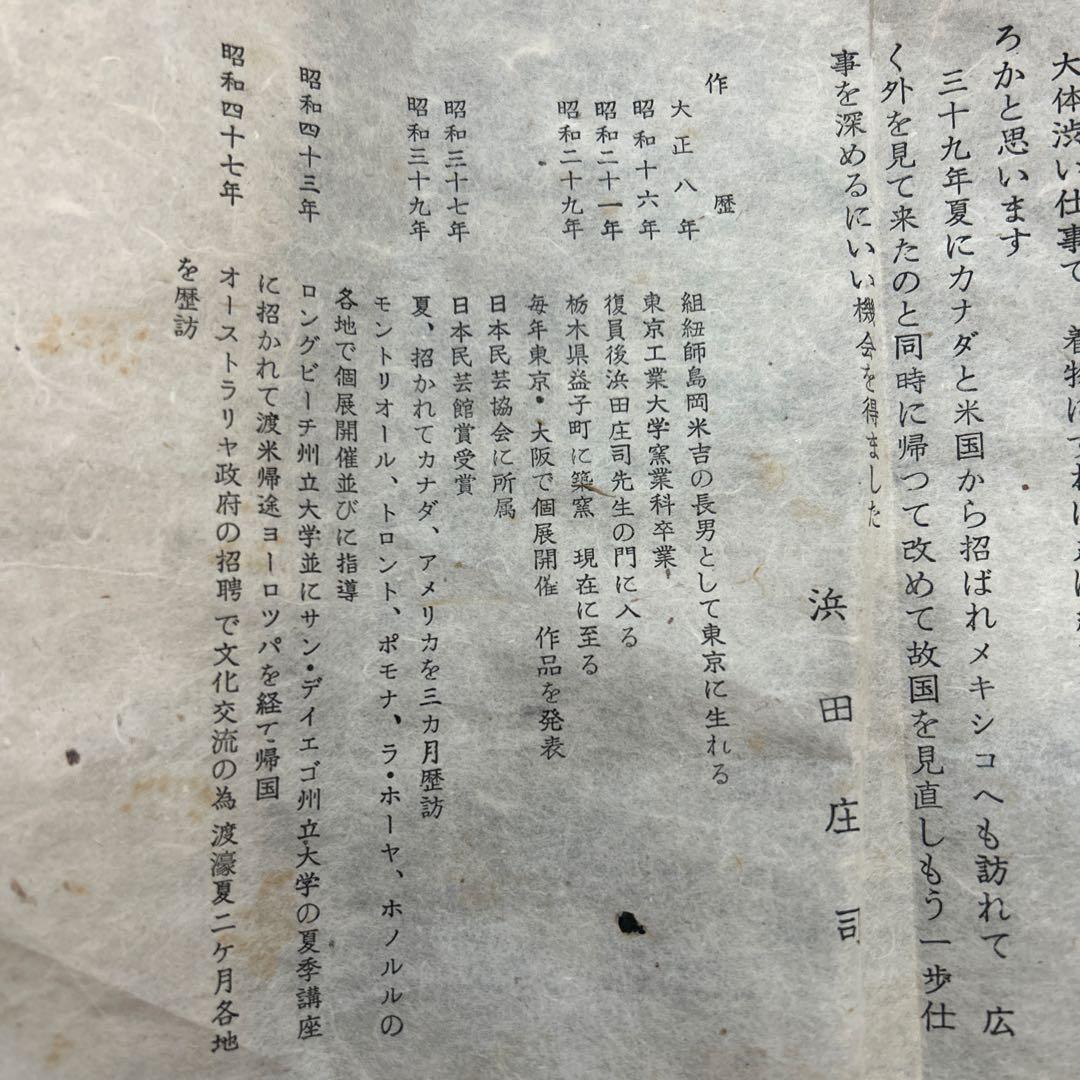 大体渋い仕事で 着物に
ろかと思います
三十九年夏にカナダと米国から招ばれメキシコへも訪れて 広
く外を見て来たのと同時に帰つて改めて故国を見直しもう一歩仕
事を深めるにいい機会を得ました
浜田庄司
作歴
大正八年 組紐師島岡米吉の長男として東京に生れる
昭和十六年 東京工業大学窯業科卒業
昭和二十一年 復員後浜田庄司先生の門に入る
昭和二十九年 栃木県益子町に築窯 現在に至る
毎年東京・大阪で個展開催 作品を発表
日本民芸協会に所属
昭和三十七年 日本民芸館賞受賞
昭和三十九年 夏、招かれてカナダ、アメリカを三カ月歴訪
モントリオール、トロント、ポモナ、ラ・ホーヤ、ホノルルの
各地で個展開催並びに指導
昭和四十三年 ロングビーチ州立大学並にサン・デイエゴ州立大学の夏季講座
に招かれて渡米帰途ヨーロツパを経て帰国
昭和四十七年 オーストラリヤ政府の招聘で文化交流の為渡濠夏二ケ月各地
を歴訪